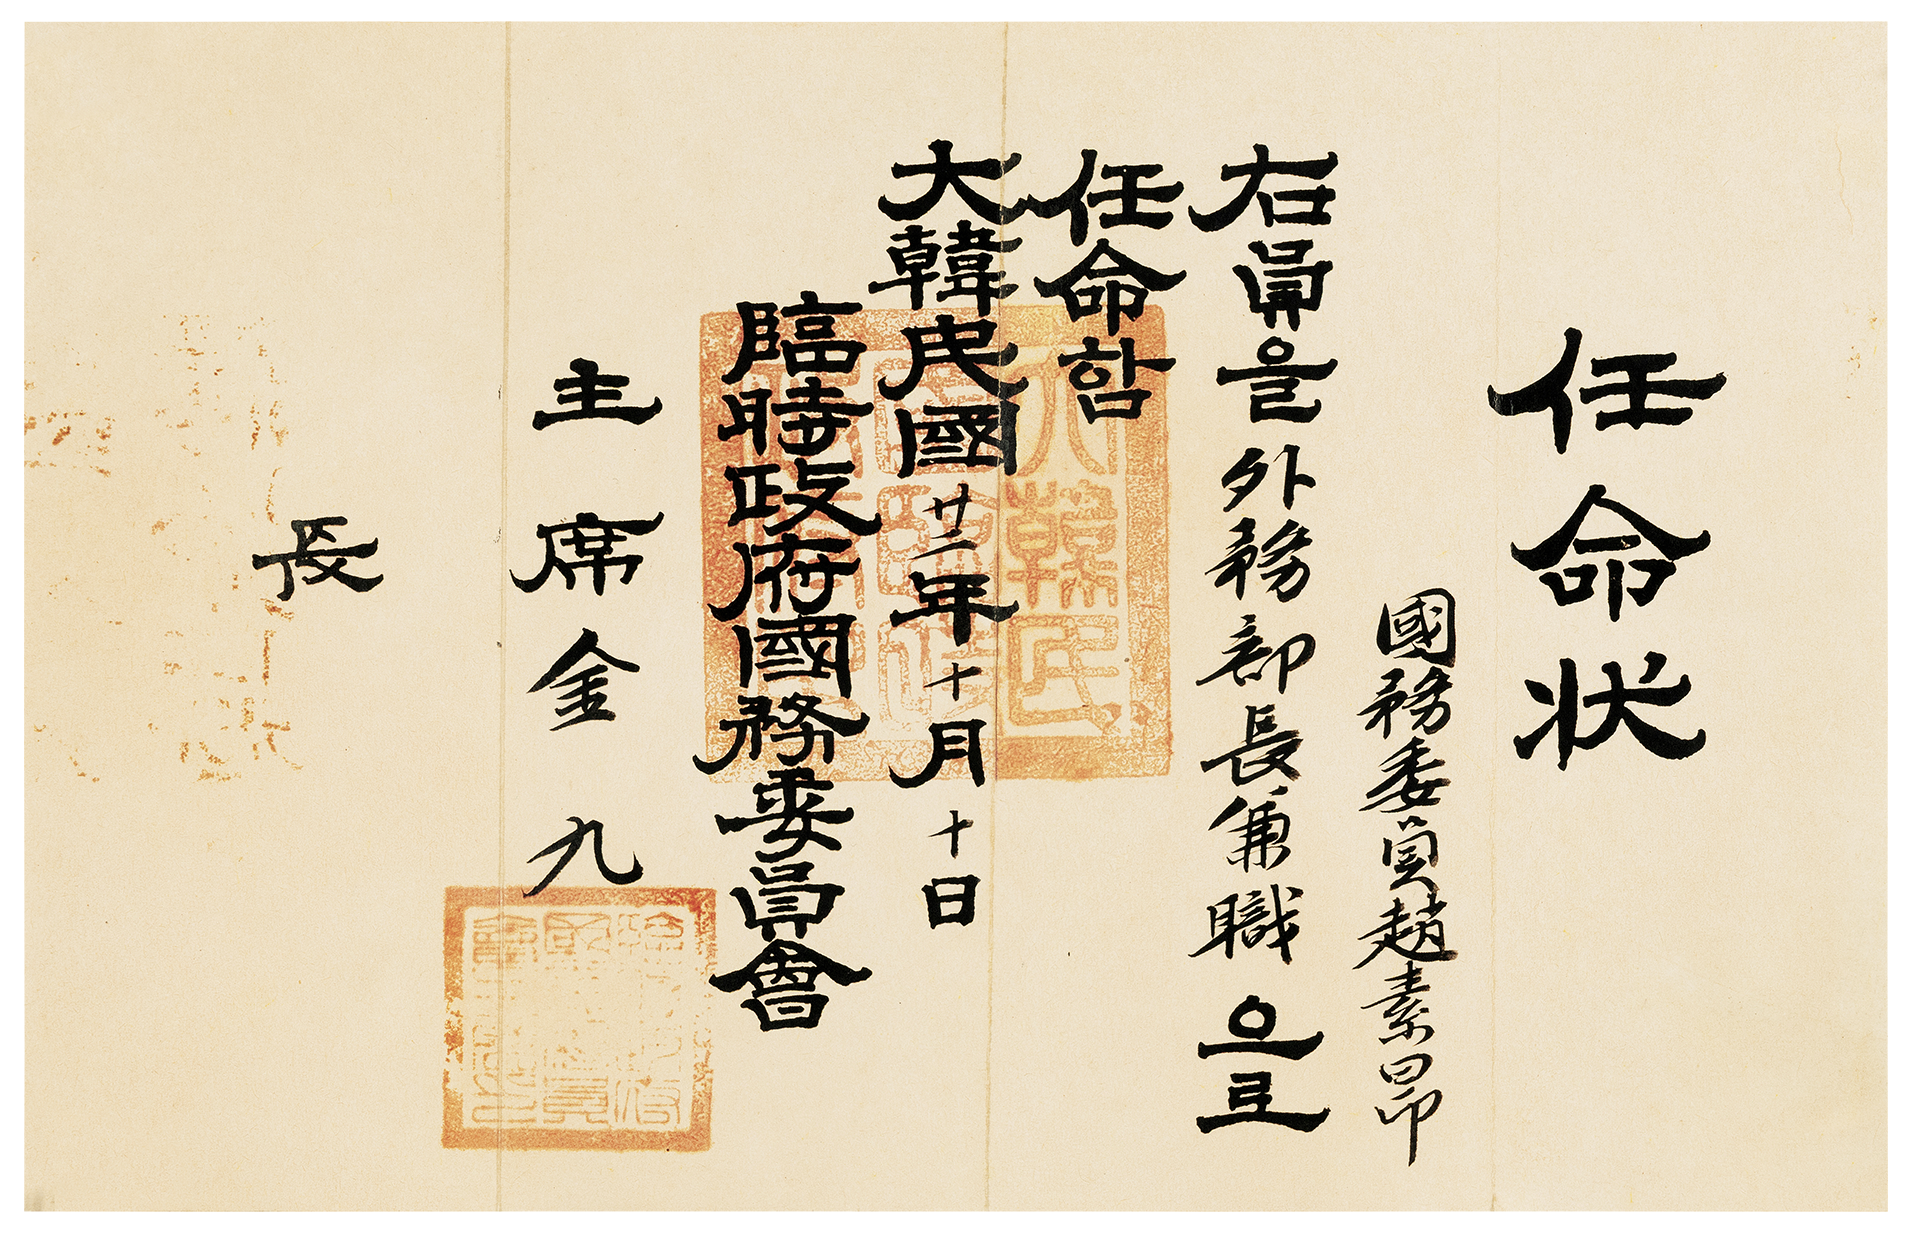 任命狀
國務委員趙素昻
右員을外務部長兼職으로
任命함
大韓民國廿二年十月十日
臨時政府國務委員會
主席金九
長